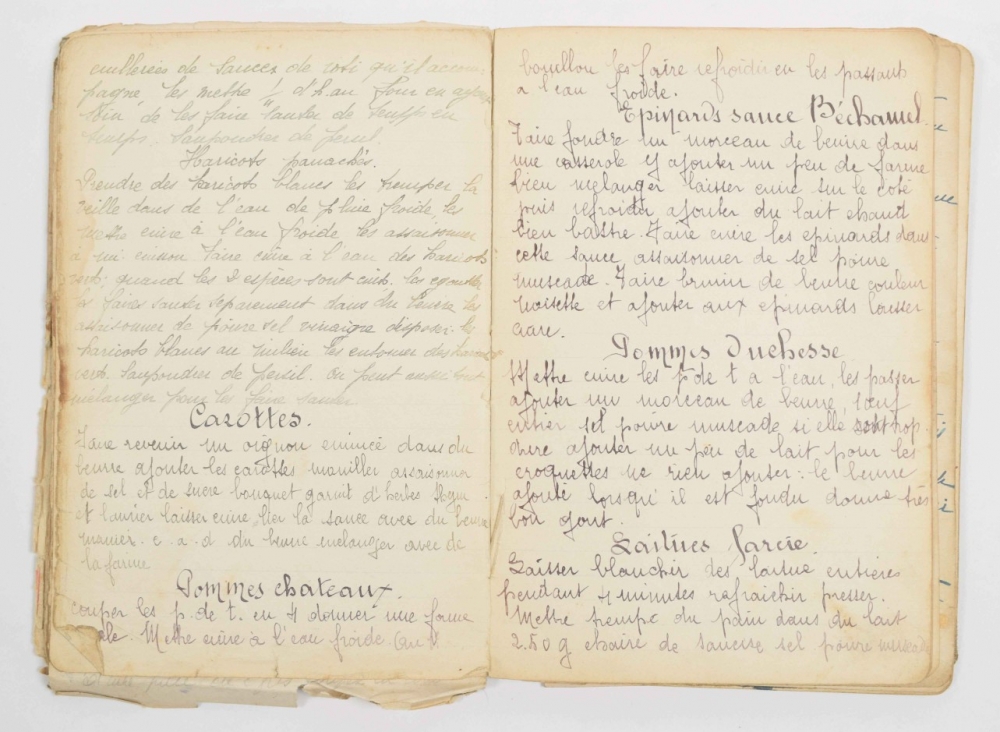 cuillerées de Sauces de roti qu'il accom-
pagne les mettre ½ d'h. au four en ayant
soin de les faire sauter de temps en
temps. Saupoudrer de persil
Haricots panachés.
Prendre des haricots blancs les tremper la
veille dans de l'eau de pluie froide, les
mettre cuire à l'eau froide les assaisonner
à mi cuisson faire cuire à l'eau des haricots
verts; quand les 2 espèces sont cuits. les egoutter
les faires sauter separement dans du beurre les
assaisonner de poivre sel vinaigre disposer les
haricots blancs au milieu les entourer des haricots
verts. Saupoudrer de persil. On peut aussi tout
melanger pour les faire sauter.
Carottes.
Faire revenir un oignon emincé dans du
beurre ajouter les carottes mouiller assaisonner
de sel et de sucre bouquet garnit d'herbes thym
et laurier laisser cuire, lier la sauce avec du beurre
manier. c. a. d du beurre melanger avec de
la farine
Pommes chateaux.
couper les p. de t. en 4 donner une forme
ale. Mettre cuire à l'eau froide (au
bouillon les faire refroidir en les passant
a l'eau froide.
Epinards sauce Béchamel
Faire fondre un morceau de beurre dans
une casserole y ajouter un peu de farine
bien melanger laisser cuire sur le coté
puis refroidir ajouter du lait chaud
bien battre. Faire cuire les epinards dans
cette sauce assaisonner de sel poivre
muscade. Faire brunir de beurre couleur
noisette et ajouter aux epinards laisser
Pommes Duchesse
Mettre cuire les p. de t a l'eau, les passer
ajouter un morceau de beurre, 1 œuf
entier sel poivre muscade si elle sont trop
dure ajouter un peu de lait pour les
croquettes ne rien ajouter. le beurre
ajouté lorsqu'il est fondu donne très
bon gout.
Laitues farcie.
Laisser blanchir des laitue entières
pendant 4 minutes rafraichir presser.
Mettre trempe du pain dans du lait
250 g chaire de saucisse sel poivre muscade